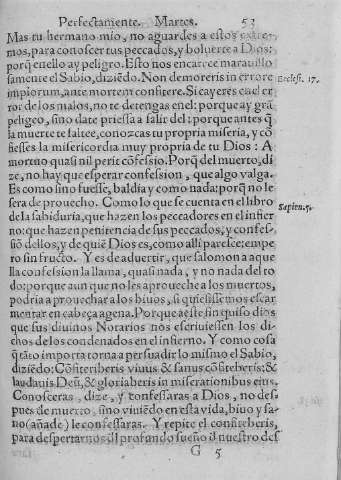 Perfectamente. Martes. 53
Mas tu hermano mio, no aguardes a estos extre-
mos, para conoscer tus peccados, y boluerte a Dios:
porq̃ en ello ay peligro. Esto nos encarece marauillo
samente el Sabio, diziẽdo. Non demoreris in errore
Ecclesi. 17.
impiorum, ante mortem confitere. Si cayeres en el er
ror de los malos, no te detengas en el: porque ay grã
peligro, sino date priessa a salir del: porque antes q̃
la muerte te saltee, conozcas tu propria miseria, y cõ
fiesses la misericordia muy propria de tu Dios: A
mortuo quasi nil perit cõfessio. Porq̃ del muerto, di
ze, no hay que esperar confession, que algo valga.
Es como sino fuesse, baldia y como nada: porq̃ no le
sera de prouecho. Como lo que se cuenta en el libro
de la sabiduria, que hazen los peccadores en el infier
Sapien. 5.
no: que hazen penitencia de sus peccados, y confes-
siõ dellos, y de quiẽ Dios es, como alli paresce: empe
ro sin fructo. Y es de aduertir, que salomon a aque
lla confession la llama, quasi nada, y no nada del to
do: porque aun que no les aproueche a los muertos,
podria aprouechar a los biuos, si quisiessemos escar
mentar en cabeça agena. Porque a este fin quiso dios
que sus diuinos Notarios nos escriuiessen los di-
chos de los condenados en el infierno. Y como cosa
q̃ tãto importa torna a persuadir lo mismo el Sabio,
diziẽdo: Cõfiteriberis viuus & sanus cõfiteberis: &
laudauis Deũ, & gloriaberis in miserationibus eius.
Conosceras, dize, y confessaras a Dios, no des
pues de muerto, sino viuiẽdo en esta vida, biuo y sa-
no (añade) le confessaras. Y repite el confiteberis,
para despertarnos d̃l profundo sueño d̃ nuestro des
G 5